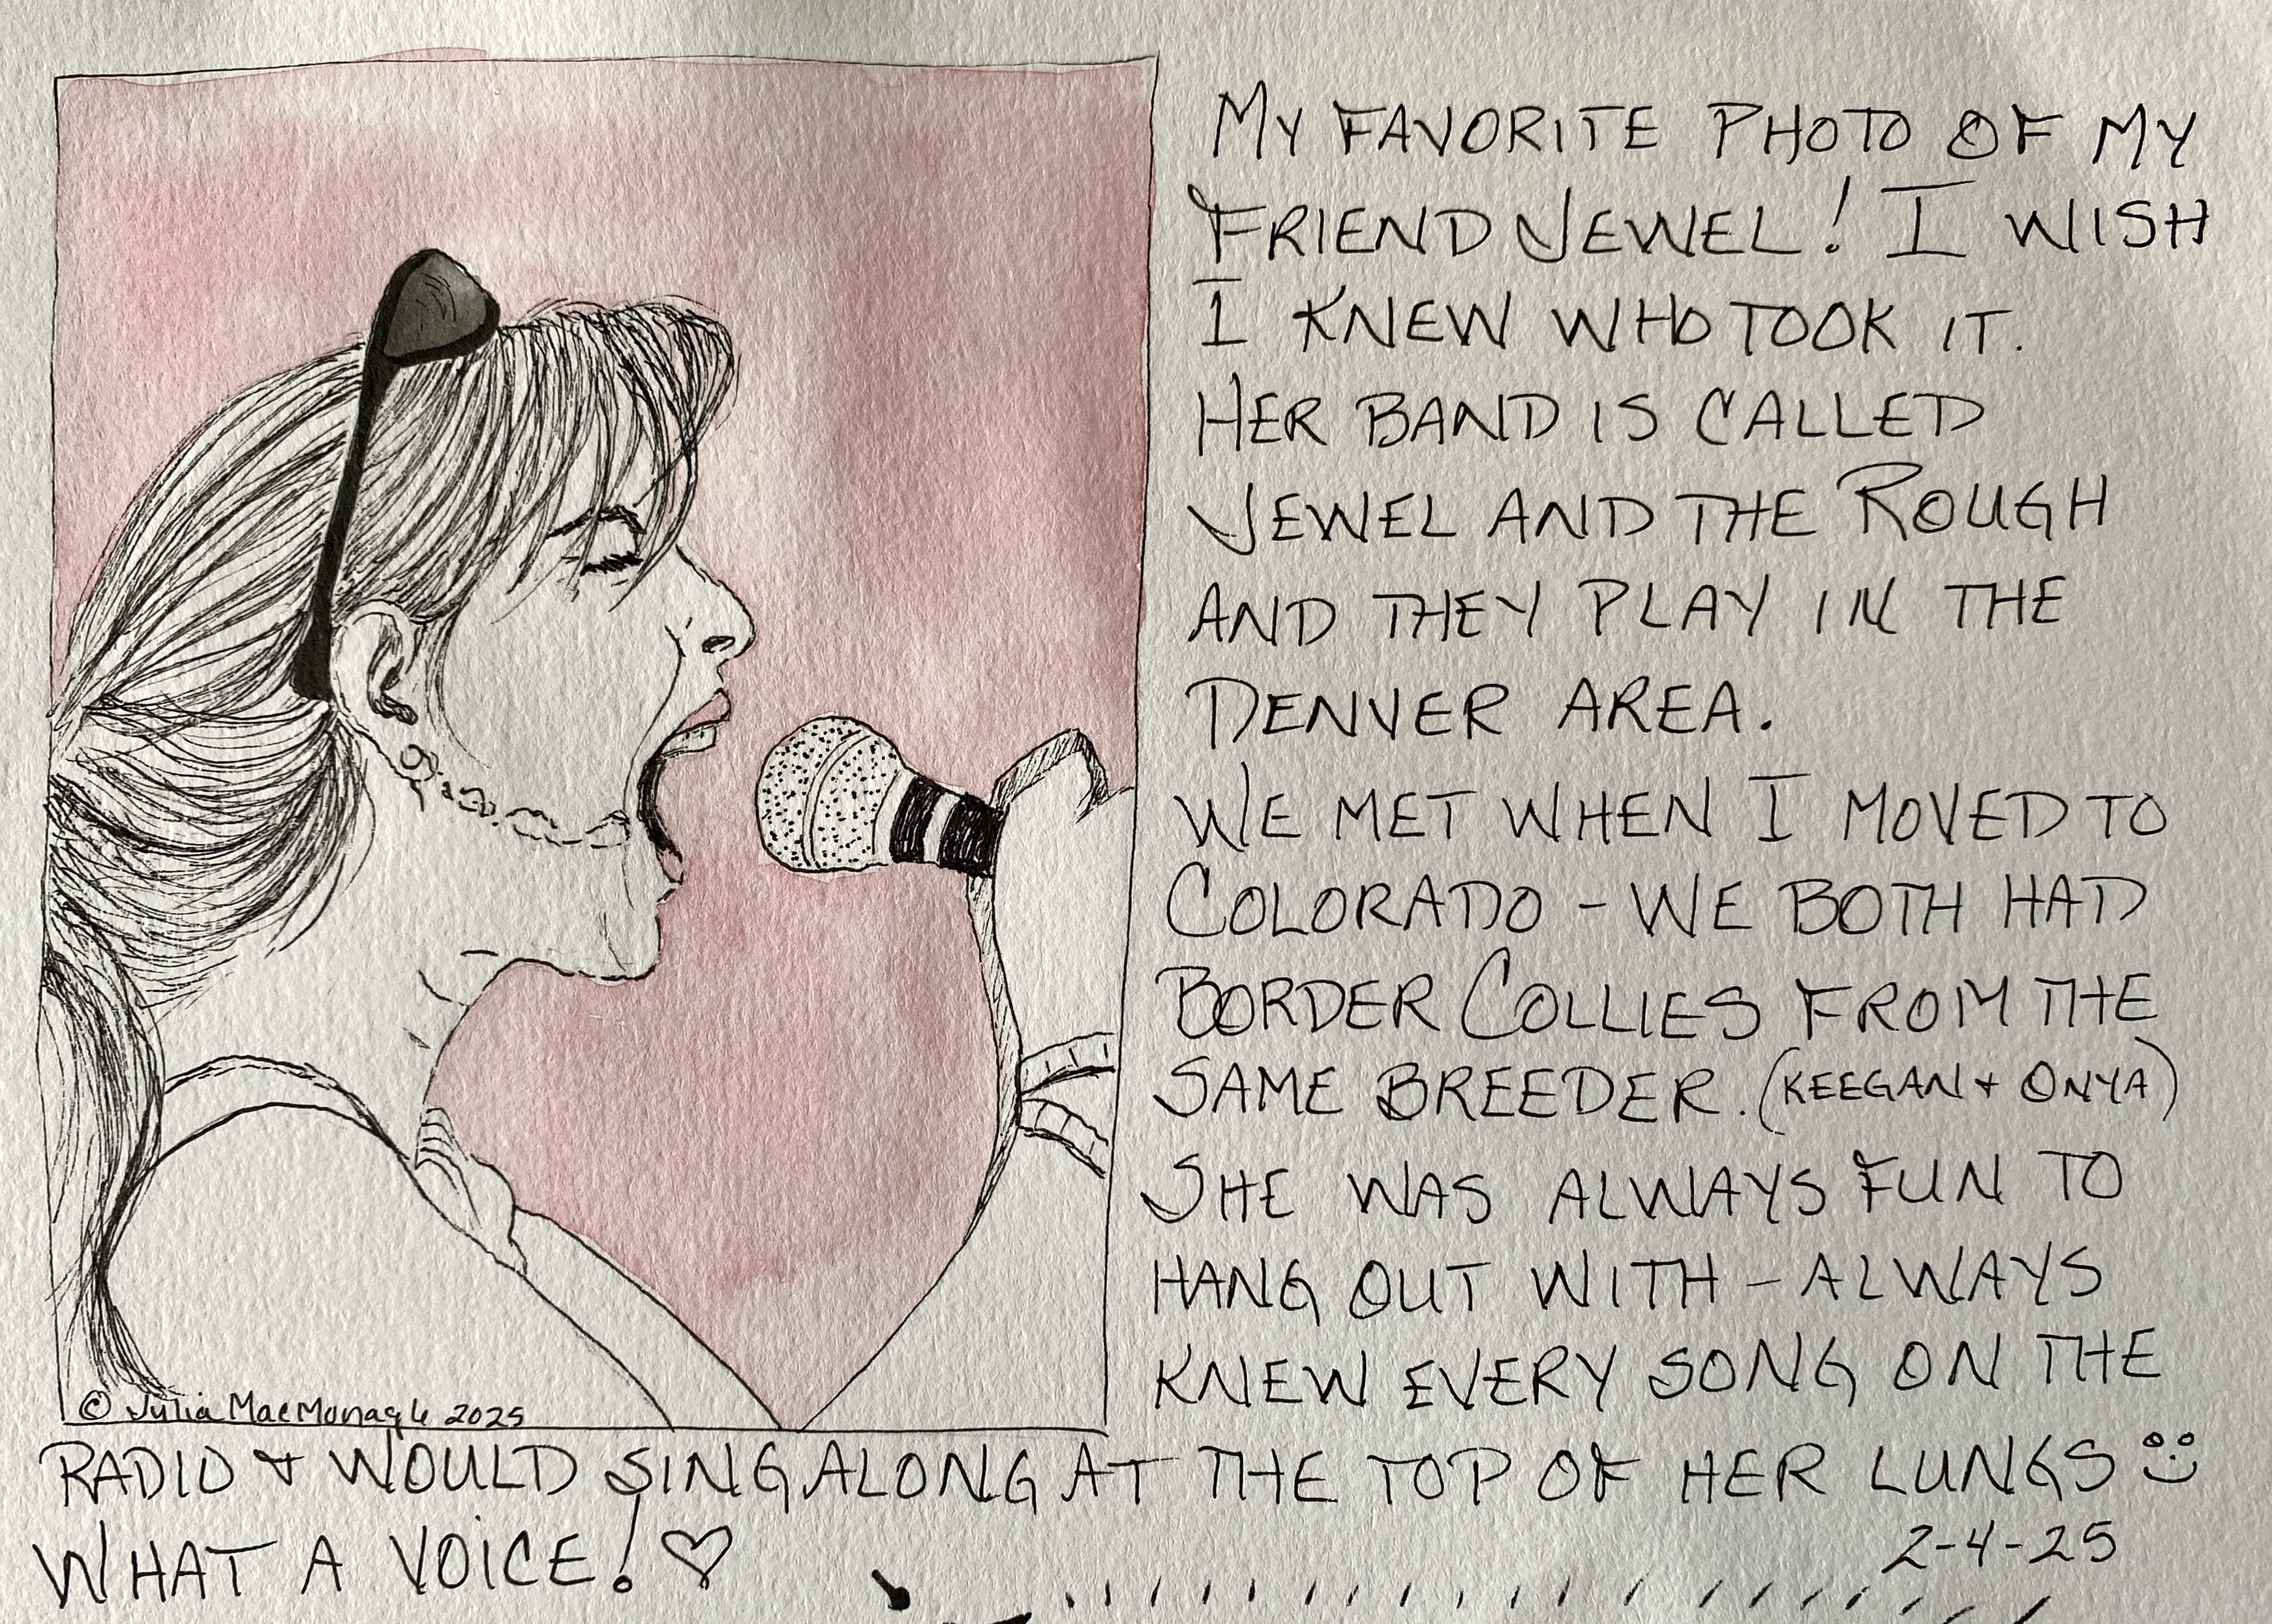 My FAVORITE PHOTO OF MY
FRIEND JEWEL! I WISH
I KNEW WHO TOOK IT.
HER BAND IS CALLED
JEWEL AND THE ROUGH
AND THEY PLAY IN THE
DENVER AREA.
WE MET WHEN I MOVED TO
COLORADO - WE BOTH HAD
BORDER COLLIES FROM THE
SAME BREEDER. (KEEGAN + ONYA)
SHE WAS ALWAYS FUN TO
HANG OUT WITH - ALWAYS
KNEW EVERY SONG ON THE
© Julia MacMonagle 2025
RADIO + WOULD SING ALONG AT THE TOP OF HER LUNGS
WHAT A VOICE! ♡
2-4-25